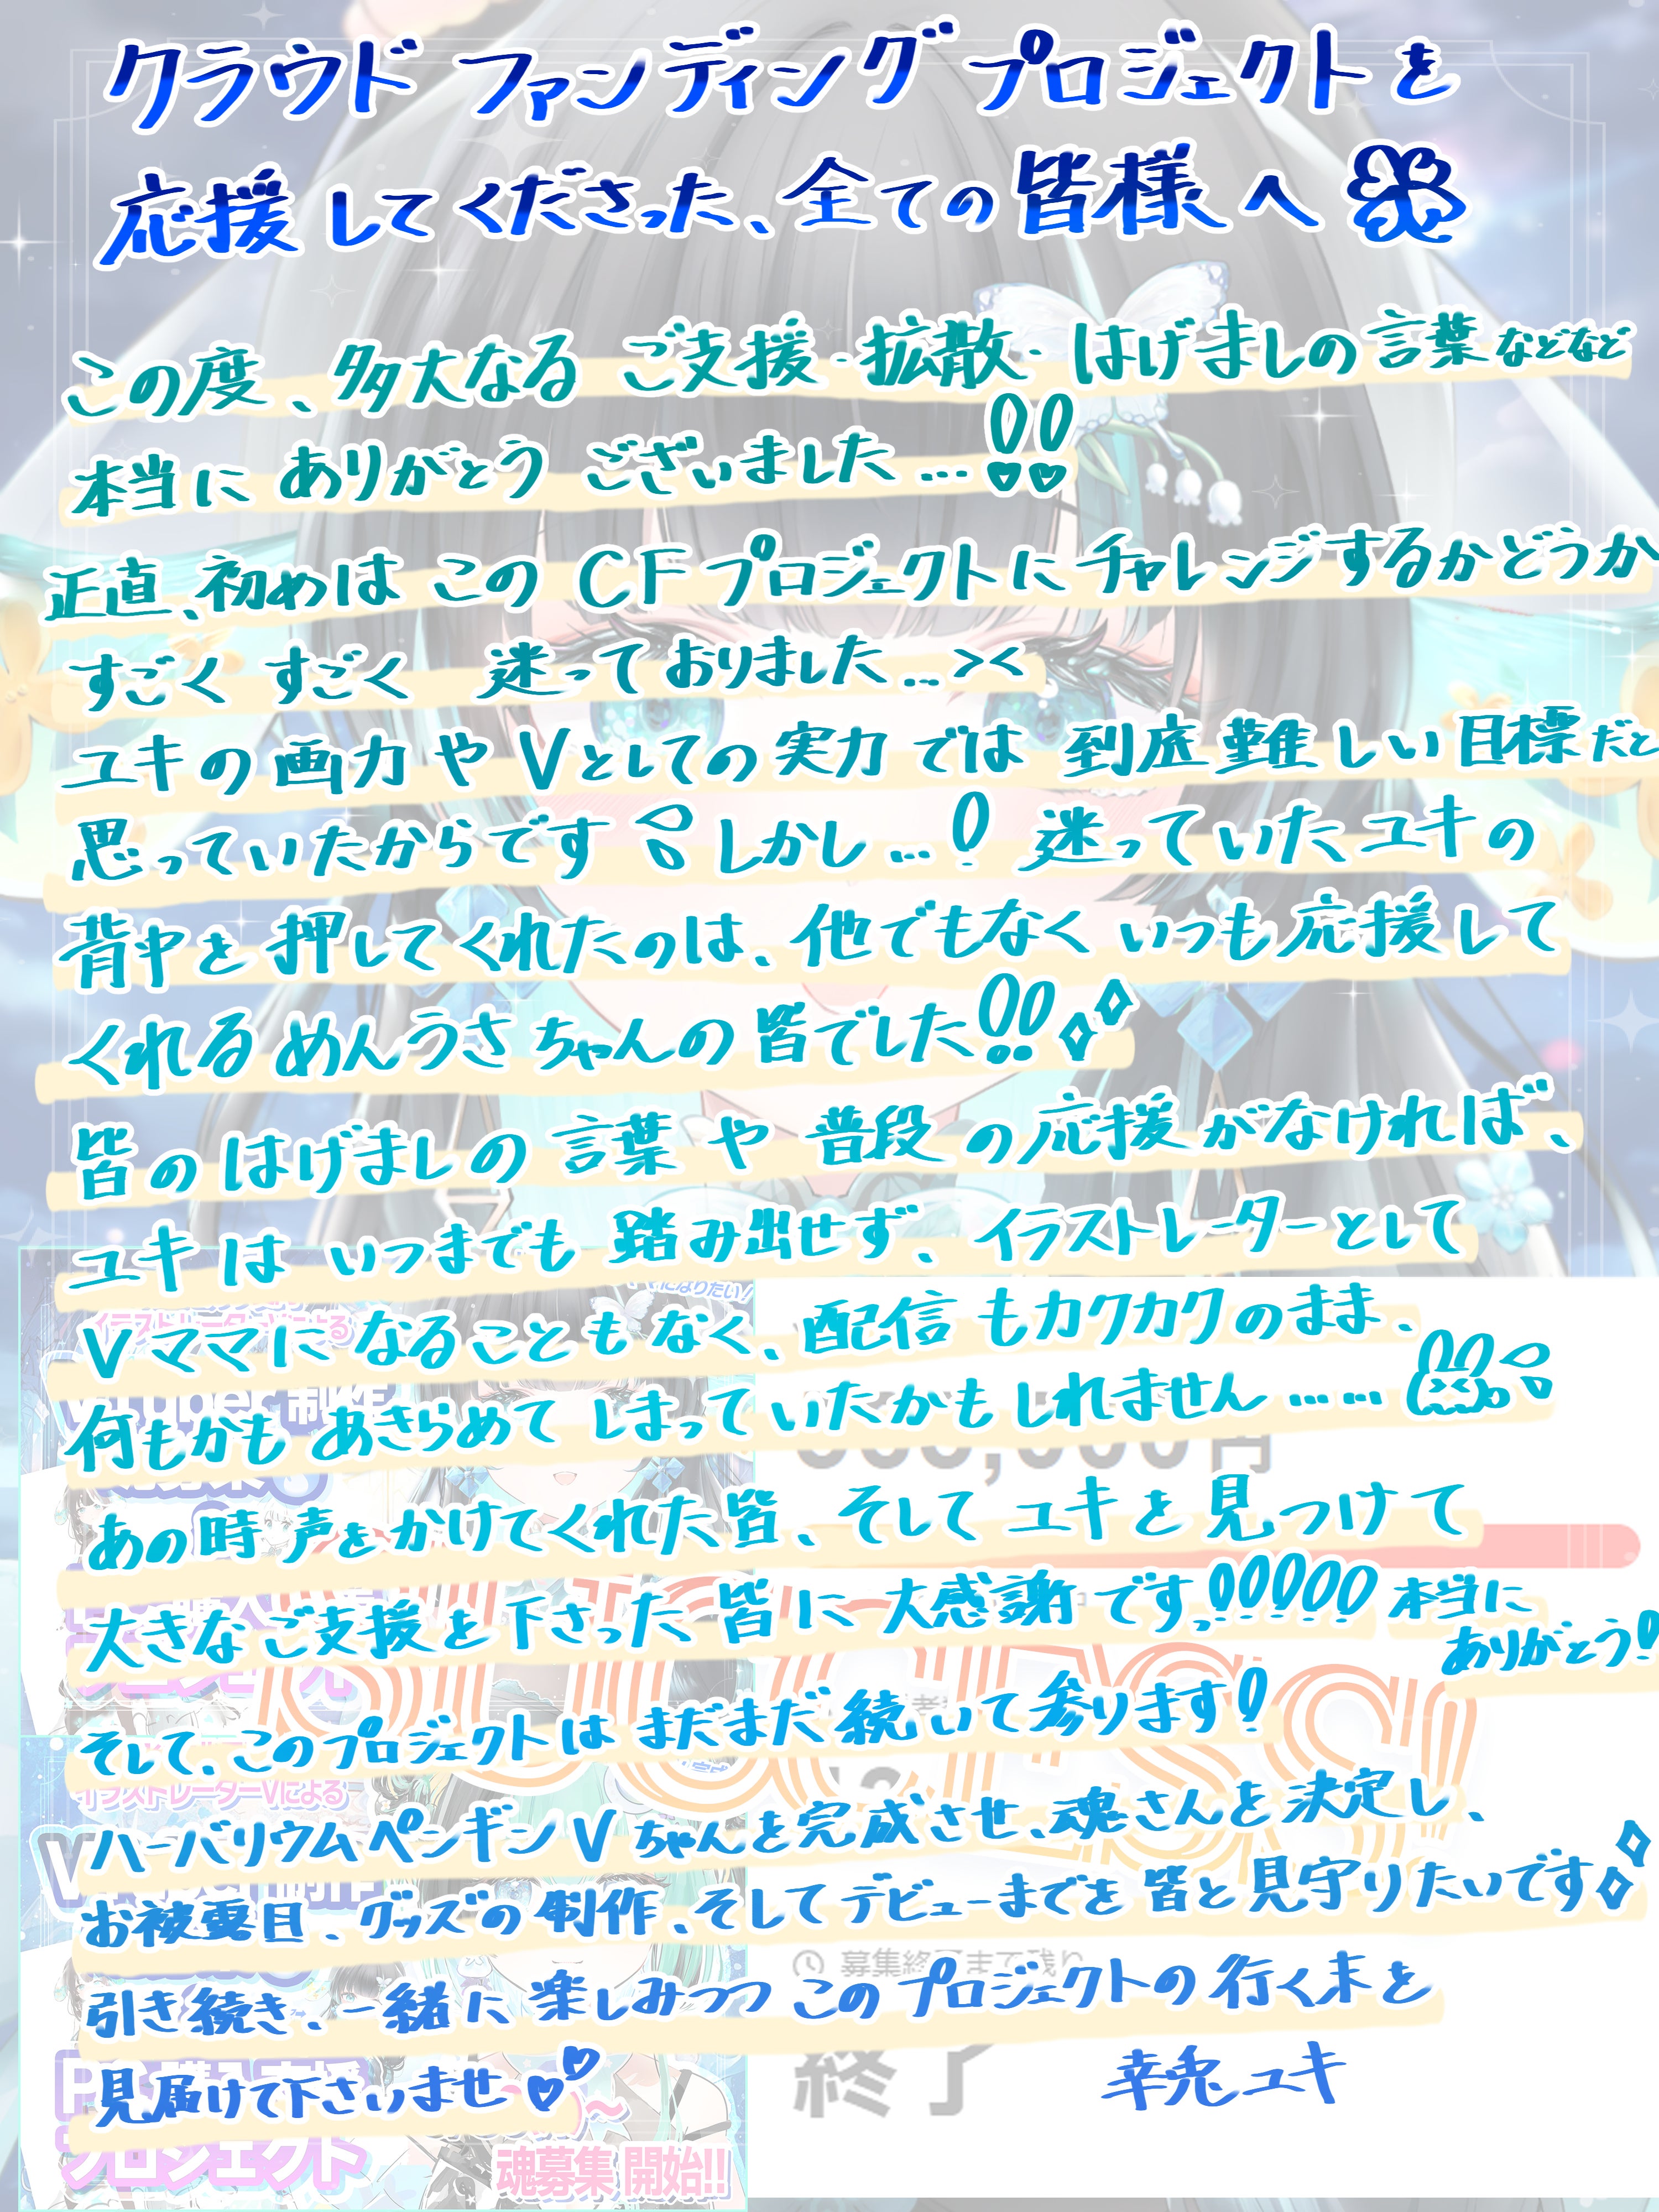 クラウドファンディングプロジェクトを
応援してくださった、全ての皆様へ
この度、多大なるご支援・拡散・はげましの言葉などなど
本当にありがとうございました…!!
正直、初めはこのCFプロジェクトにチャレンジするかどうか
すごくすごく迷っておりました…><
ユキの画力やVとしての実力では到底難しい目標だと
思っていたからです しかし…! 迷っていたユキの
背中を押してくれたのは、他でもなくいつも応援して
くれるめんうさちゃんの皆でした!!
皆のはげましの言葉や普段の応援がなければ、
ユキはいつまでも踏み出せず、イラストレーターとして
Vママになることもなく、配信もカクカクのまま、
何もかもあきらめてしまっていたかもしれません……
あの時声をかけてくれた皆、そしてユキを見つけて
大きなご支援を下さった皆に大感謝です!!!!! 本当に
ありがとう!
そして、このプロジェクトはまだまだ続いて参ります!
ハーバリウムペンギンVちゃんを完成させ、魂さんを決定し、
お披露目、グッズの制作、そしてデビューまでを皆と見守りたいです
引き続き、一緒に楽しみつつこのプロジェクトの行く末を
見届けて下さいませ♡
幸兎ユキ
になりたい!
イラストレーターVによる
円
SUCCESS!
募集終了まで残り
終了
プロジェクト
魂募集 開始!!